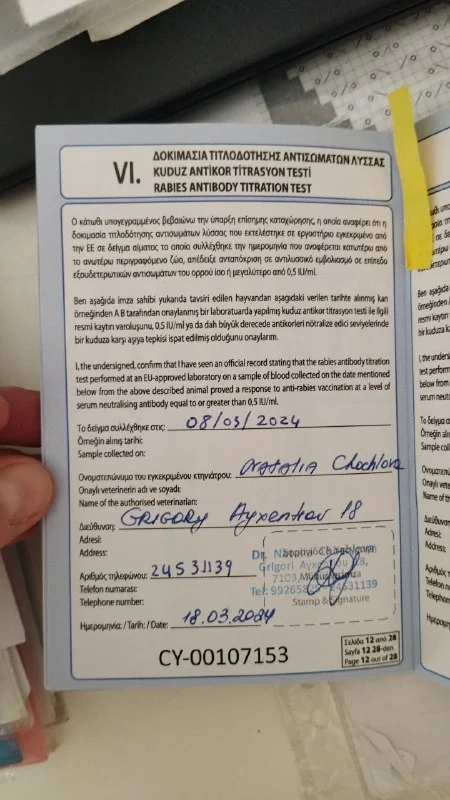 VI.
ΔΟΚΙΜΑΣΙΑ ΤΙΤΛΟΔΟΤΗΣΗΣ ΑΝΤΙΣΩΜΑΤΩΝ ΛΥΣΣΑΣ
KUDUZ ANTİKOR TİTRASYON TESTİ
RABIES ANTIBODY TITRATION TEST
Ο κάτωθι υπογεγραμμένος βεβαιώνω την ύπαρξη επίσημης καταχώρησης, η οποία αναφέρει ότι η
δοκιμασία τιτλοδότησης αντισωμάτων λύσσας που εκτελέστηκε σε εργαστήριο εγκεκριμένο από
την ΕΕ σε δείγμα αίματος το οποίο συλλέχθηκε την ημερομηνία που αναφέρεται κατωτέρω από
το ανωτέρω περιγραφόμενο ζώο, απέδειξε ανταπόκριση σε αντιλυσικό εμβολιασμό σε επίπεδα
εξουδετερωτικών αντισωμάτων του ορρού ίσο ή μεγαλύτερο από 0,5 IU/ml.
Ben aşağıda imza sahibi yukanda tavsiri edilen hayvandan aşagıdaki verilen tarihte alınmış kan
örneğinden A.B tarafından onaylanmış bir laboratuarda yapılmış kuduz antikor titrasyon testi ile ilgili
resmi kaytın varoluşunu, 0.5 IU/ml ya da dah büyük derecede antikorleri nötralize edici seviyelerinde
bir kuduza karşı aşıya tepkisi ispat edilmiş olduğunu onaylarım.
I, the undersigned, confirm that I have seen an official record stating that the rabies antibody titration
test performed at an EU-approved laboratory on a sample of blood collected on the date mentioned
below from the above described animal proved a response to anti-rabies vaccination at a level of
serum neutralising antibody equal to or greater than 0,5 IU/ml.
Το δείγμα συλλέχθηκε στις: 08/03/2024
Örneğin alınış tarihi:
Sample collected on:
Ονοματεπώνυμο του εγκεκριμένου κτηνιάτρου: NATALIA Chochlova
Onaylı veterinerin adı ve soyadı:
Name of the authorised veterinarian:
Διεύθυνση: GRIGORY Ayxentiou 18
Adresi:
Address:
Αριθμός τηλεφώνου: 24531139
Telefon numarası:
Telephone number:
Dr.
Grigori
7103
Tel:
Stamp & Signature
Ημερομηνία: / Tarih: / Date: 18.03.2024
CY-00107153
Σελίδα 12 από 28
Sayfa 12 28-den
Page 12 out of 28